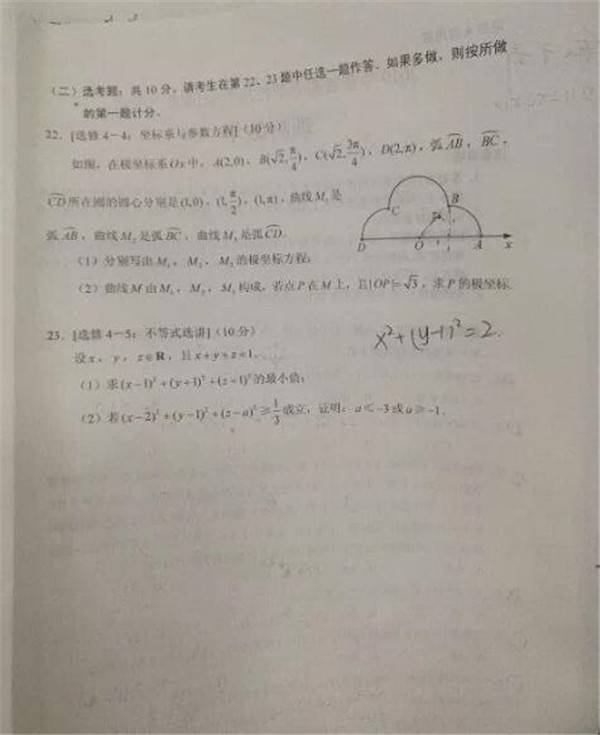 (二)选考题:共10分。请考生在第22、23题中任选一题作答。如果多做,则按所做
的第一题计分。
22.[选修4-4:坐标系与参数方程](10分)
如图,在极坐标系Ox中,A(2,0),B(√2,π/4),C(√2,3π/4),D(2,π),弧AB,BC,
CD所在圆的圆心分别是(1,0),(1,π/2),(1,π),曲线M₁是
弧AB,曲线M₂是弧BC,曲线M₃是弧CD.
(1)分别写出M₁,M₂,M₃的极坐标方程;
(2)曲线M由M₁,M₂,M₃构成,若点P在M上,且|OP|=√3,求P的极坐标.
B
C
D
O
A
x
23.[选修4-5:不等式选讲](10分)
x²+(y-1)²=2.
设x,y,z∈R,且x+y+z=1.
(1)求(x-1)²+(y+1)²+(z+1)²的最小值;
(2)若(x-2)²+(y-1)²+(z-a)²≥1/3成立,证明:a≤-3或a≥-1.